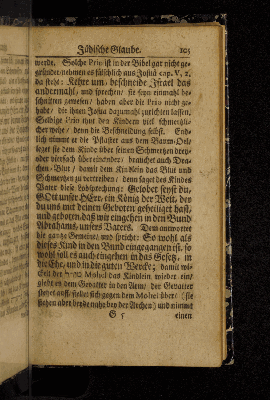 Jüdische Glaube. 105
werde. Solche Prio ist in der Bibel gar nicht ge-
gründet/nehmen es fälschlich aus Josua cap. V, 2.
da steht: Kehre um/ beschneide Israel das
andremahl/ und sprechen/ sie seyn einmahl be-
schnitten gewesen/ haben aber die Prio nicht ge-
habt/ die ihnen Josua dazumahl zurichten lassen.
Selbige Prio thut den Kindern viel schmerzli-
cher wehe/ denn die Beschneidung selbst. End-
lich nimmt er die Pflaster aus dem Baum-Oel/
leget sie dem Kinde über seinen Schmertzen drey-
oder vierfach über einander/ brauchet auch Dra-
chen-Blut/ damit dem Kindlein das Blut und
Schmertzen zu vertreiben/ denn saget des Kindes
Vater diese Lobsprechung: Gelobet seyst du,
GOtt unser HErr, ein König der Welt, der
du uns mit deinen Geboten geheiliget hast,
und geboten daß wir eingehen in den Bund
Abrahams, unsers Vaters. Dem antwortet
die gantze Gemeine/ und spricht: So wohl als
dieses Kind in den Bund eingegangen ist, so
wohl soll es auch eingehen in das Gesetz, in
die Ehe, und in die guten Wercke; damit wi-
ckelt der Mohel das Kindlein wieder ein/
giebt es dem Gevatter in den Arm/ der Gevatter
stehet auff/ stellet sich gegen dem Mohel über/ (sie
stehen aber beyde nahe bey der Archen) und nimmt
G 5 einen